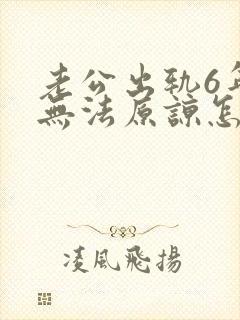 老公出轨6年
無法原諒怎
凌風飛揚